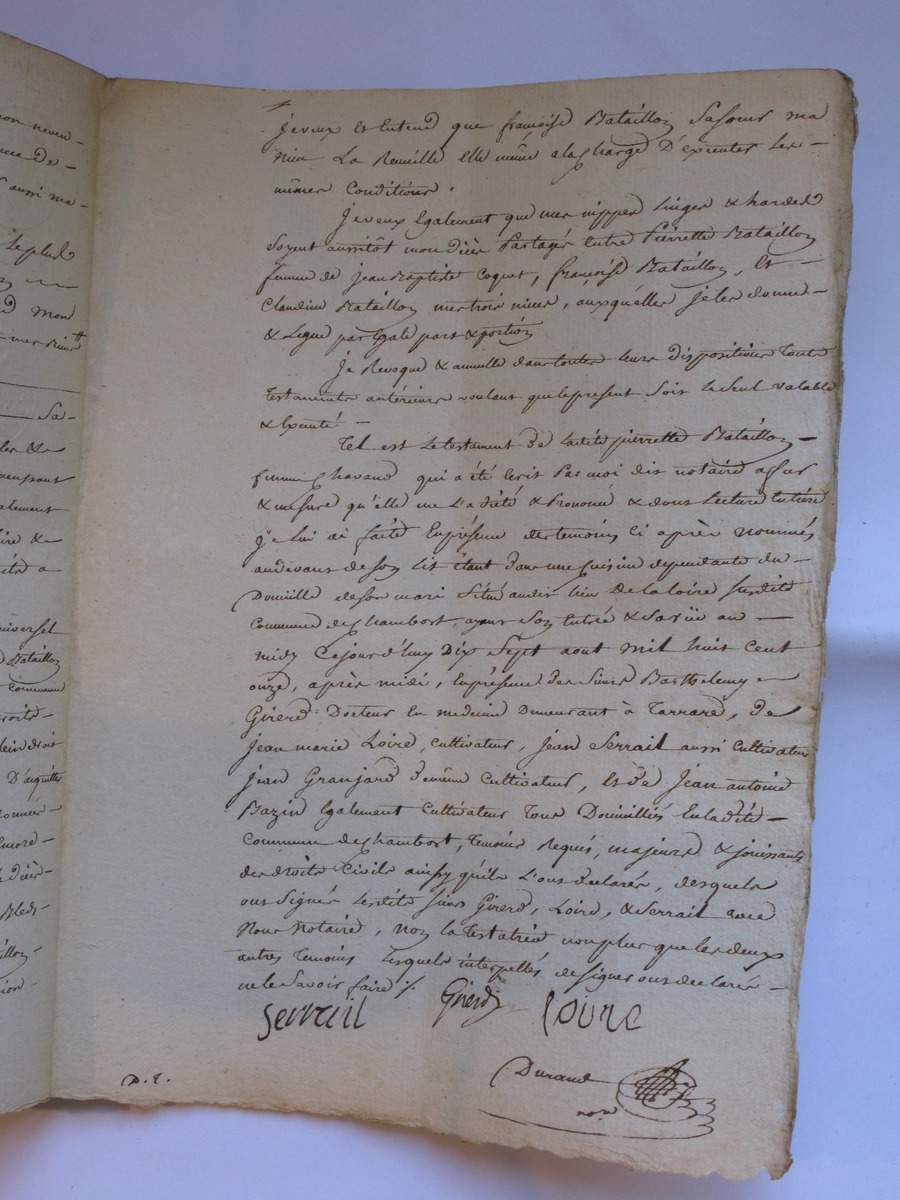 mon neveu
Le plus
mon
Sa-
universel
Bataillon
commune
droits-
plein droit
D'acquitter
Encore-
Jeveux et Entend que françoise Bataillon Sa soeur ma
Niece La Recueille elle même ala Charge D'executer Les-
mêmes Conditions.
Jeveux Egalement que mes nippes Linges & hardes
Soyent aussitôt mon dècès Partagés Entre Pierrette Bataillon
femme de jean Baptiste Coquet, françoise Bataillon, Et
Claudine Bataillon mes trois nieces, auxquelles je les donne-
& Legue par Egale part & portion
Je Revoque & annulle dans toutes leurs dispositions Touts
Testaments antérieurs voulant que le present Soit Le Seul valable
& Executé-
Tel est Le testament De Ladite pierrette Bataillon-
femme Chavand qui a été Ecrit Par moi dit notaire a fur
& mesure qu'elle me L'a dicté & Prononcé & dont Lecture Entière
Je Lui ai faite En présence des temoins Ci après nommés
au devant de Son Lit étant Dans une Cuisine dependante du-
Domicille de Son mari Situé audit Lieu De la Loire Susdite
Commune de Chambost, ayant Son Entrée & Sortie au-
midy Cejourd'huy Dix Sept aout Mil huit Cent
onze, après midi, En présence des Sieurs Barthelemy-
Girerd Docteur En medecine Demeurant à Tarrare, de
Jean marie Loire, cultivateur, Jean Serrail aussi Cultivateur
Jean Granjard de même Cultivateur, Et de Jean antoine
Bazin Egalement Cultivateur Tous Domicilliés En la dite-
Commune de Chambost, Temoins Requis, majeurs & jouissants
des droits Civils ainsy qu'ils L'ont declarés, desquels
ont Signés Lesdits Sieurs Girerd, Loire, & Serrail avec
Nous Notaire, Non la Testatrice non plus que les deux
autres Temoins Lesquels interpellés de Signer ont declarés-
ne le Savoir faire ./.
Serrail Girerd Loire
D. T.
Durand
nore